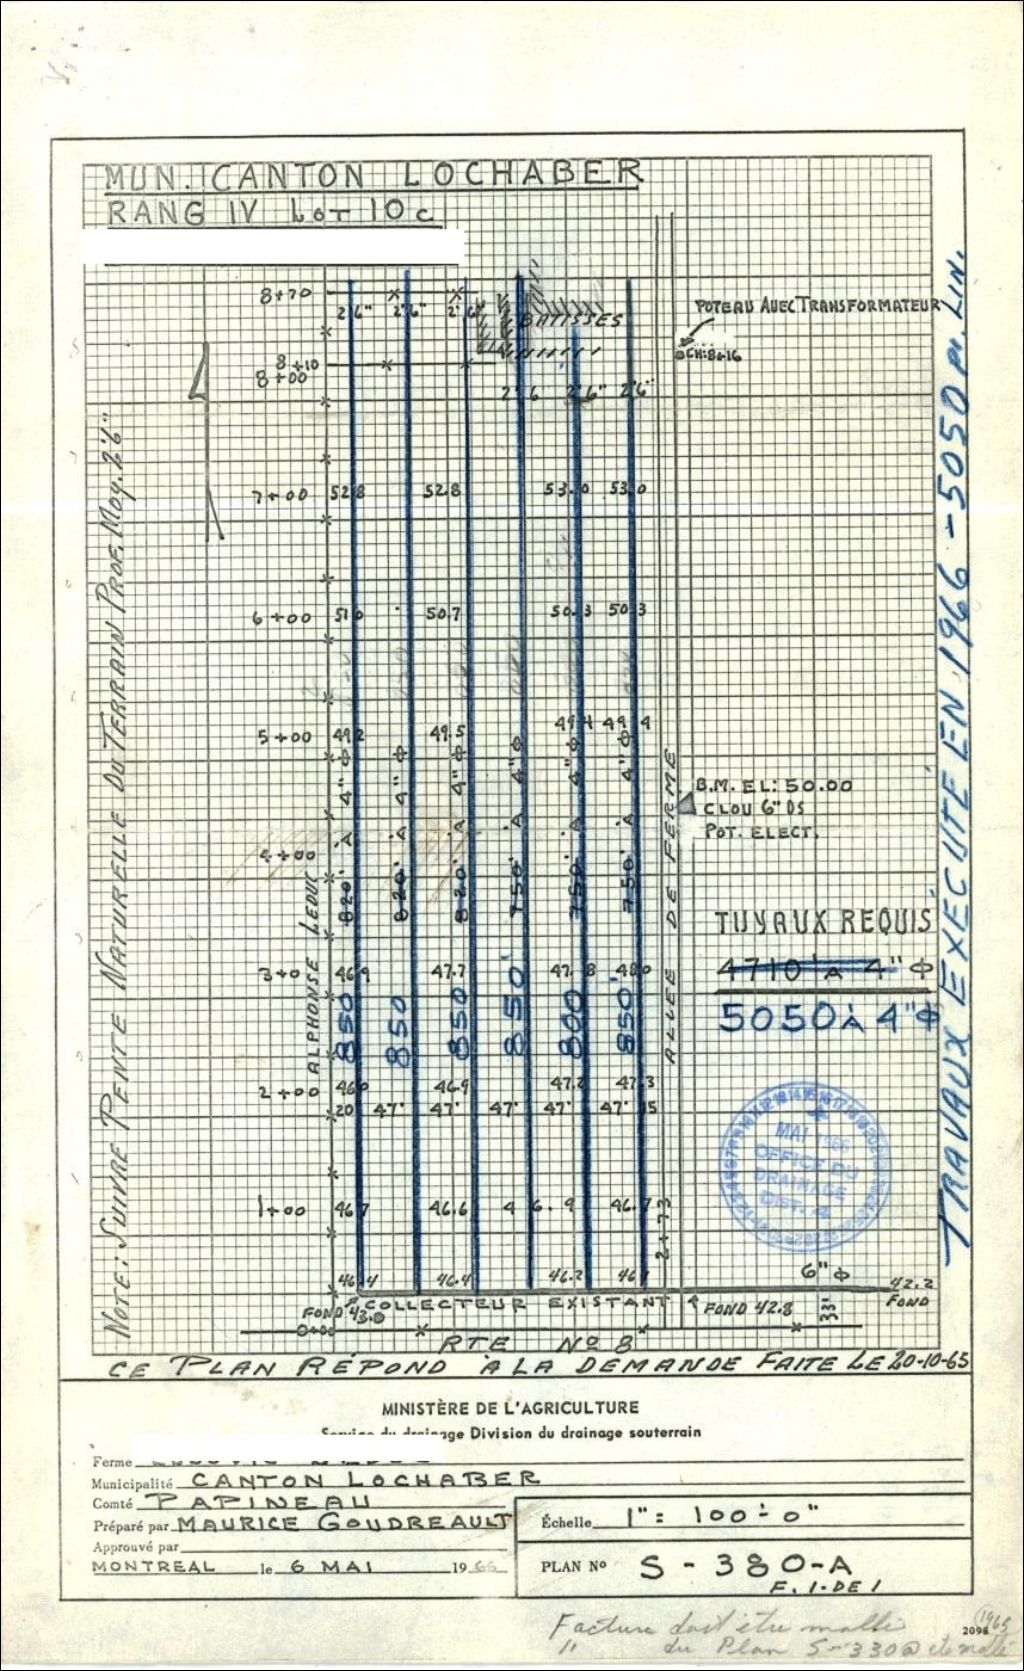 MUN. CANTON LOCHABER
RANG IV LOT 10c
8+70
2'6" 2'6" 2'6"
BATISSES
POTEAU AVEC TRANSFORMATEUR
CH: 8+16
8+10
8+00
2'6 2'6" 2'6"
7+00 52.8 52.8 53.0 53.0
6+00 51.0 50.7 50.3 50.3
5+00 49.2 49.5 49.4 49.4
B.M. EL: 50.00
CLOU 6" DS
POT. ELECT.
4+00
820' À 4"Φ
820' À 4"Φ
820' À 4"Φ
750' À 4"Φ
750' À 4"Φ
750' À 4"Φ
ALPHONSE LEDUC
ALLÉE DE FERME
TUYAUX REQUIS
4710' À 4"Φ
5050 À 4"Φ
3+0 46.9 47.7 47.8 48.0
850' 850 850' 850' 800 850'
2+00 46.0 46.9 47.2 47.3
20 47' 47' 47' 47' 47' 15
MAI 1966
OFFICE DU
DRAINAGE
DIST. 4
1+00 46.7 46.6 46.9 46.7
2+73
46.4 46.4 46.2
6"Φ
42.2
FOND
FOND 43.0
COLLECTEUR EXISTANT
FOND 42.8
33'
0+00
RTE NO 8
NOTE: SUIVRE PENTE NATURELLE DU TERRAIN PROF. MOY. 2'6"
TRAVAUX EXÉCUTÉ EN 1966 - 5050 PI. LIN.
CE PLAN RÉPOND À LA DEMANDE FAITE LE 20-10-65
MINISTÈRE DE L'AGRICULTURE
Service du drainage Division du drainage souterrain
Ferme
Municipalité CANTON LOCHABER
Comté PAPINEAU
Préparé par MAURICE GOUDREAULT
Échelle 1" = 100'-0"
Approuvé par
MONTREAL le 6 MAI 1966
PLAN No S-380-A
F. 1. DE 1
Facture doit être mallé
" du Plan S-330@
2098
1965